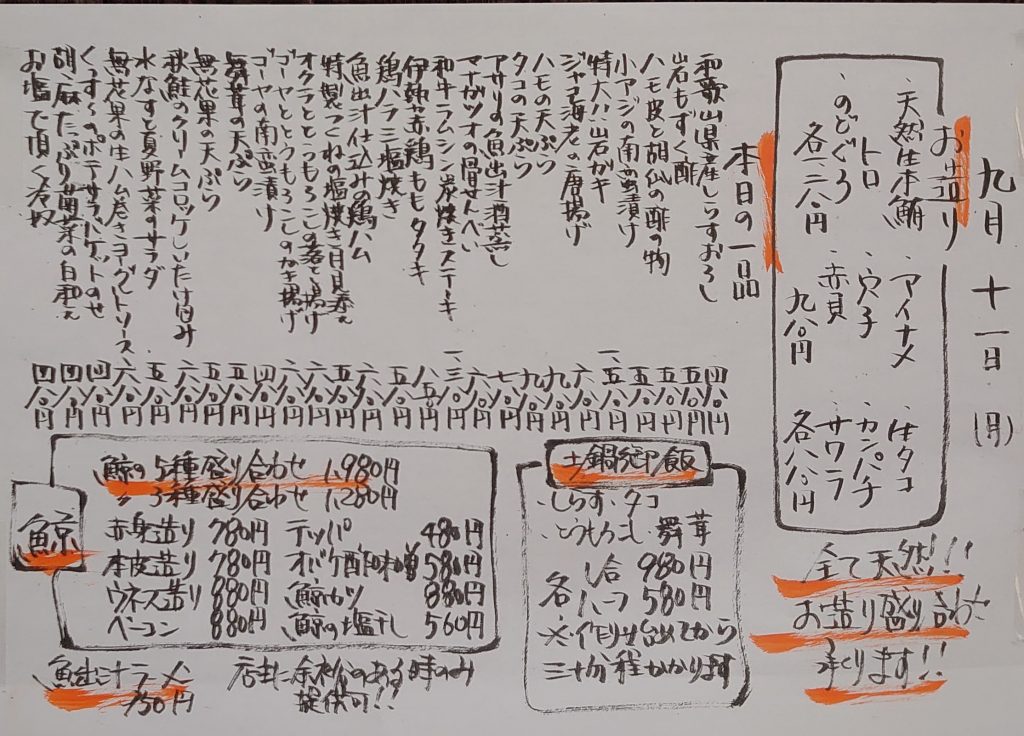 九月 十一日 (月)
お造り
・天然生本鮪 ・アイナメ ・生タコ
・トロ ・穴子 ・カンパチ
・のどぐろ ・赤貝 サワラ
九八〇円 各八八〇円
全て天然!!
お造り盛り合わせ
承ります!!
本日の一品
和歌山県産しらすおろし 四八〇円
岩もずく酢 五八〇円
ハモ皮と胡瓜の酢の物 五八〇円
小アジの南蛮漬け 五八〇円
特大!!岩ガキ
ジャコ海老の唐揚げ
ハモの天ぷら
タコの天ぷら
アサリの魚出汁酒蒸し
マナガツオの骨せんべい
和牛ラムシン炭焼きステーキ
伊勢赤鶏ももタタキ
鶏ハラミ塩焼き
魚出汁仕込みの鶏ハム
特製つくねの塩焼き月見添え
オクラととうもろこしの落とし揚げ
ゴーヤととうもろこしのかき揚げ
ゴーヤの南蛮漬け
舞茸の天ぷら
無花果の天ぷら
秋鮭のクリームコロッケしいたけ包み
水なすと夏野菜のサラダ
無花果の生ハム巻きヨーグルトソース
くんずらのポテサラバゲットのせ 四八〇円
胡麻たっぷり菌菜の白和え 四八〇円
お塩で頂く冷奴 四八〇円
土鍋御飯
・しらす・タコ
・とうもろこし 舞茸
各 一合 980円
ハーフ 580円
※作りは台出てから
三十分程かかります
鯨
鯨の5種盛り合わせ 1,980円
〃 3種盛り合わせ 1,280円
赤身造り 780円 テッパ 480円
本皮造り 780円 オバケ酢味噌 580円
ウネス造り 880円 鯨カツ 880円
ベーコン 880円 鯨の塩干し 560円
魚出汁ラーメン
750円
店主に余裕のある時のみ
提供可!!